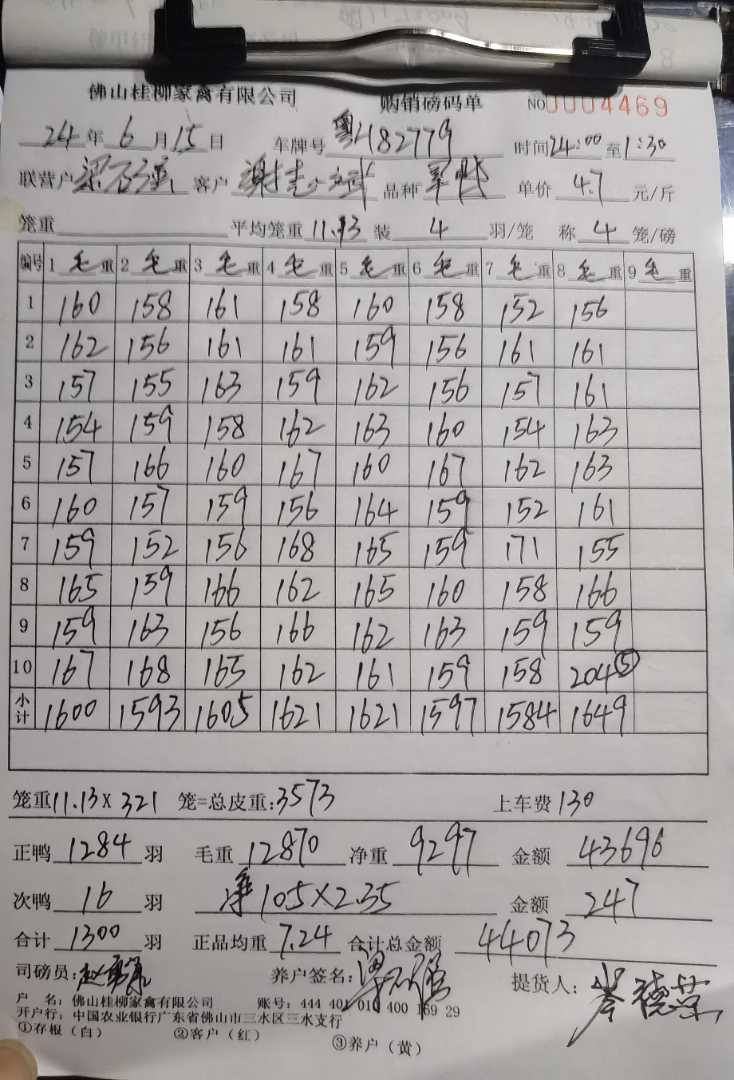 佛山桂柳家禽有限公司 购销磅码单 NO 0004469
24年6月15日 车牌号 粤H82779 时间24:00至1:30
联营户 客户 品种 单价 4.7 元/斤
笼重 平均笼重 11.13 装 4 羽/笼 称 4 笼/磅
编号 1毛重 2毛重 3毛重 4毛重 5毛重 6毛重 7毛重 8毛重 9毛重
1 160 158 161 158 160 158 152 156
2 162 156 161 161 159 156 161 161
3 157 155 163 159 162 156 157 161
4 154 159 158 162 163 160 154 163
5 157 166 160 167 160 167 162 163
6 160 157 159 156 164 159 152 161
7 159 152 156 168 165 159 171 155
8 165 159 166 162 165 160 158 166
9 159 163 156 166 162 163 159 159
10 167 168 165 162 161 159 158 204⑤
小计 1600 1593 1605 1621 1621 1597 1584 1649
笼重11.13X321 笼=总皮重:3573 上车费130
正鸭 1284 羽 毛重 12870 净重 9297 金额 43696
次鸭 16 羽 净 105X2.35 金额 247
合计 1300 羽 正品均重 7.24 合计总金额 44073
司磅员: 养户签名: 提货人:
户 名:佛山桂柳家禽有限公司 账号:444 401 010 400 169 29
开户行:中国农业银行广东省佛山市三水区三水支行
①存根(白) ②客户(红) ③养户(黄)